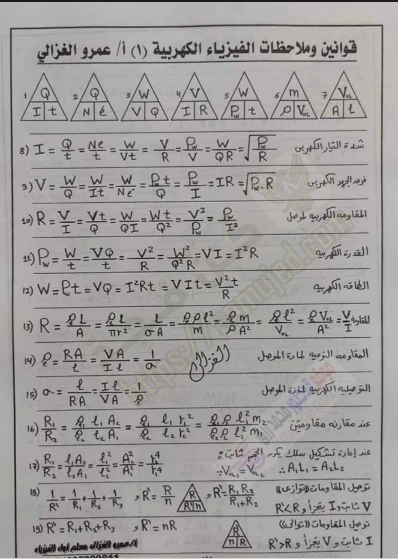 قوانين وملاحظات الفيزياء الكهربية (١) أ/ عمرو الغزالي
1 Q I t 2 Q N é 3 W V Q 4 V I R 5 W Pw t 6 m ρ VoL 7 VoL A l
8) I = Q/t = Ne/t = W/Vt = V/R = Pw/V = W/QR = √(Pw/R) شدة التيار الكهربى
9) V = W/Q = W/It = W/Ne = Pw t/Q = Pw/I = IR = √(Pw.R) فرق الجهد الكهربى
10) R = V/I = Vt/Q = W/QI = Wt/Q² = V²/Pw = Pw/I² المقاومة الكهربية لموصل
11) Pw = W/t = VQ/t = V²/R = W²/Q²R = VI = I²R القدرة الكهربية
12) W = Pw t = VQ = I²Rt = VIt = V²t/R الطاقة الكهربية
13) R = ρe L/A = ρe l/πr² = l/σA = ρe ρ l²/m = ρe m/ρA² = ρe l²/VoL = ρe VoL/A² = V/I المقاومة
14) ρe = RA/l = VA/Il = 1/σ الغزالى المقاومة النوعية لمادة الموصل
15) σ = l/RA = Il/VA = 1/ρe التوصيلية الكهربية لمادة الموصل
16) R₁/R₂ = ρe₁ l₁ A₂/ρe₂ l₂ A₁ = ρe₁ l₁ r₂²/ρe₂ l₂ r₁² = ρe₁ ρ₁ l₁² m₂/ρe₂ ρ₂ l₂² m₁ عند مقارنة مقاومتين
17) R₁/R₂ = l₁A₂/l₂A₁ = l₁²/l₂² = A₂²/A₁² = r₂⁴/r₁⁴ عند إعادة تشكيل سلك يكون الحجم ثابت :
∴ VoL₁ = VoL₂ ∴ A₁L₁ = A₂L₂
18) 1/R' = 1/R₁ + 1/R₂ + 1/R₃ و R' = R/n R R' n و R' = R₁R₂/R₁+R₂ توصيل المقاومات (توازى)
V ثابت و I يتجزأ و R' < R
19) R' = R₁+R₂+R₃ و R' = nR R' n R توصيل المقاومات (توالى)
I ثابت و V يتجزأ و R' > R
أ/عمرو الغزالى معلم أول الفيزياء